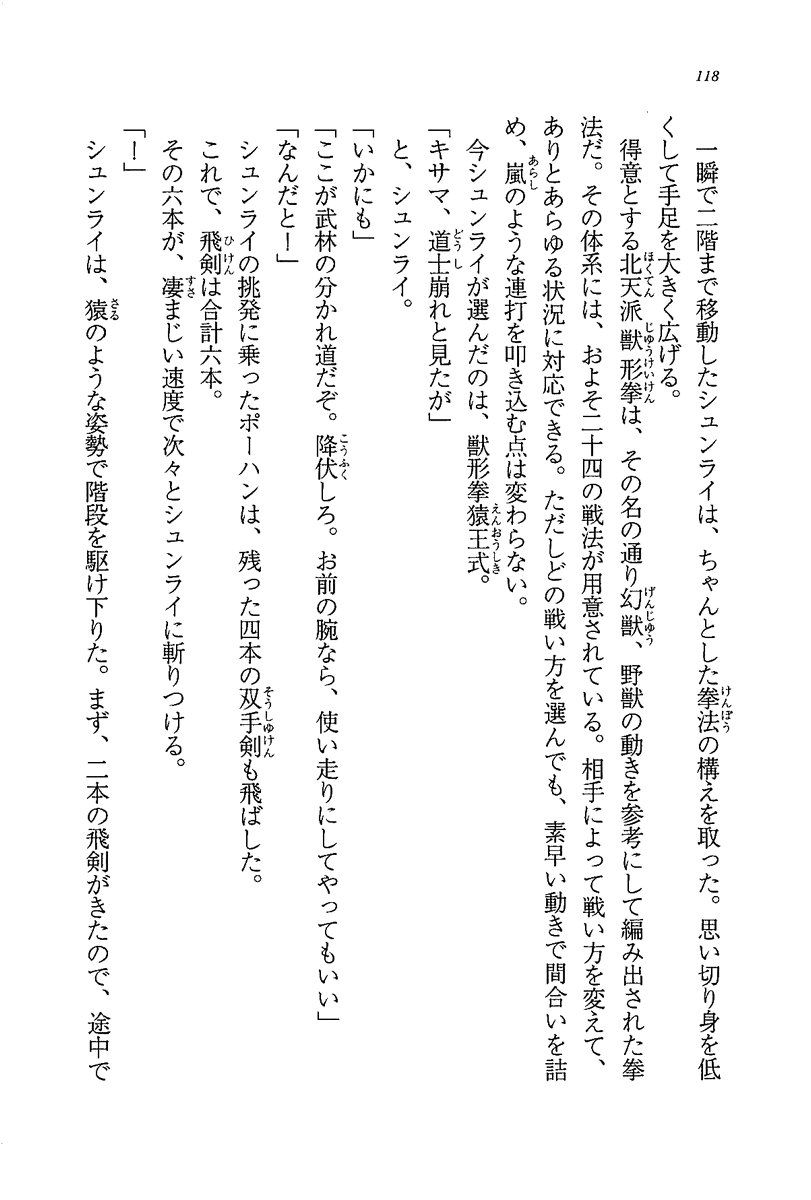 118
一瞬で二階まで移動したシュンライは、ちゃんとした拳法の構えを取った。思い切り身を低
くして手足を大きく広げる。
得意とする北天派獣形拳は、その名の通り幻獣、野獣の動きを参考にして編み出された拳
法だ。その体系には、およそ二十四の戦法が用意されている。相手によって戦い方を変えて、
ありとあらゆる状況に対応できる。ただしどの戦い方を選んでも、素早い動きで間合いを詰
め、嵐のような連打を叩き込む点は変わらない。
今シュンライが選んだのは、獣形拳猿王式。
「キサマ、道士崩れと見たが」
と、シュンライ。
「いかにも」
「ここが武林の分かれ道だぞ。降伏しろ。お前の腕なら、使い走りにしてやってもいい」
「なんだと！」
シュンライの挑発に乗ったポーハンは、残った四本の双手剣も飛ばした。
これで、飛剣は合計六本。
その六本が、凄まじい速度で次々とシュンライに斬りつける。
「！」
シュンライは、猿のような姿勢で階段を駆け下りた。まず、二本の飛剣がきたので、途中で